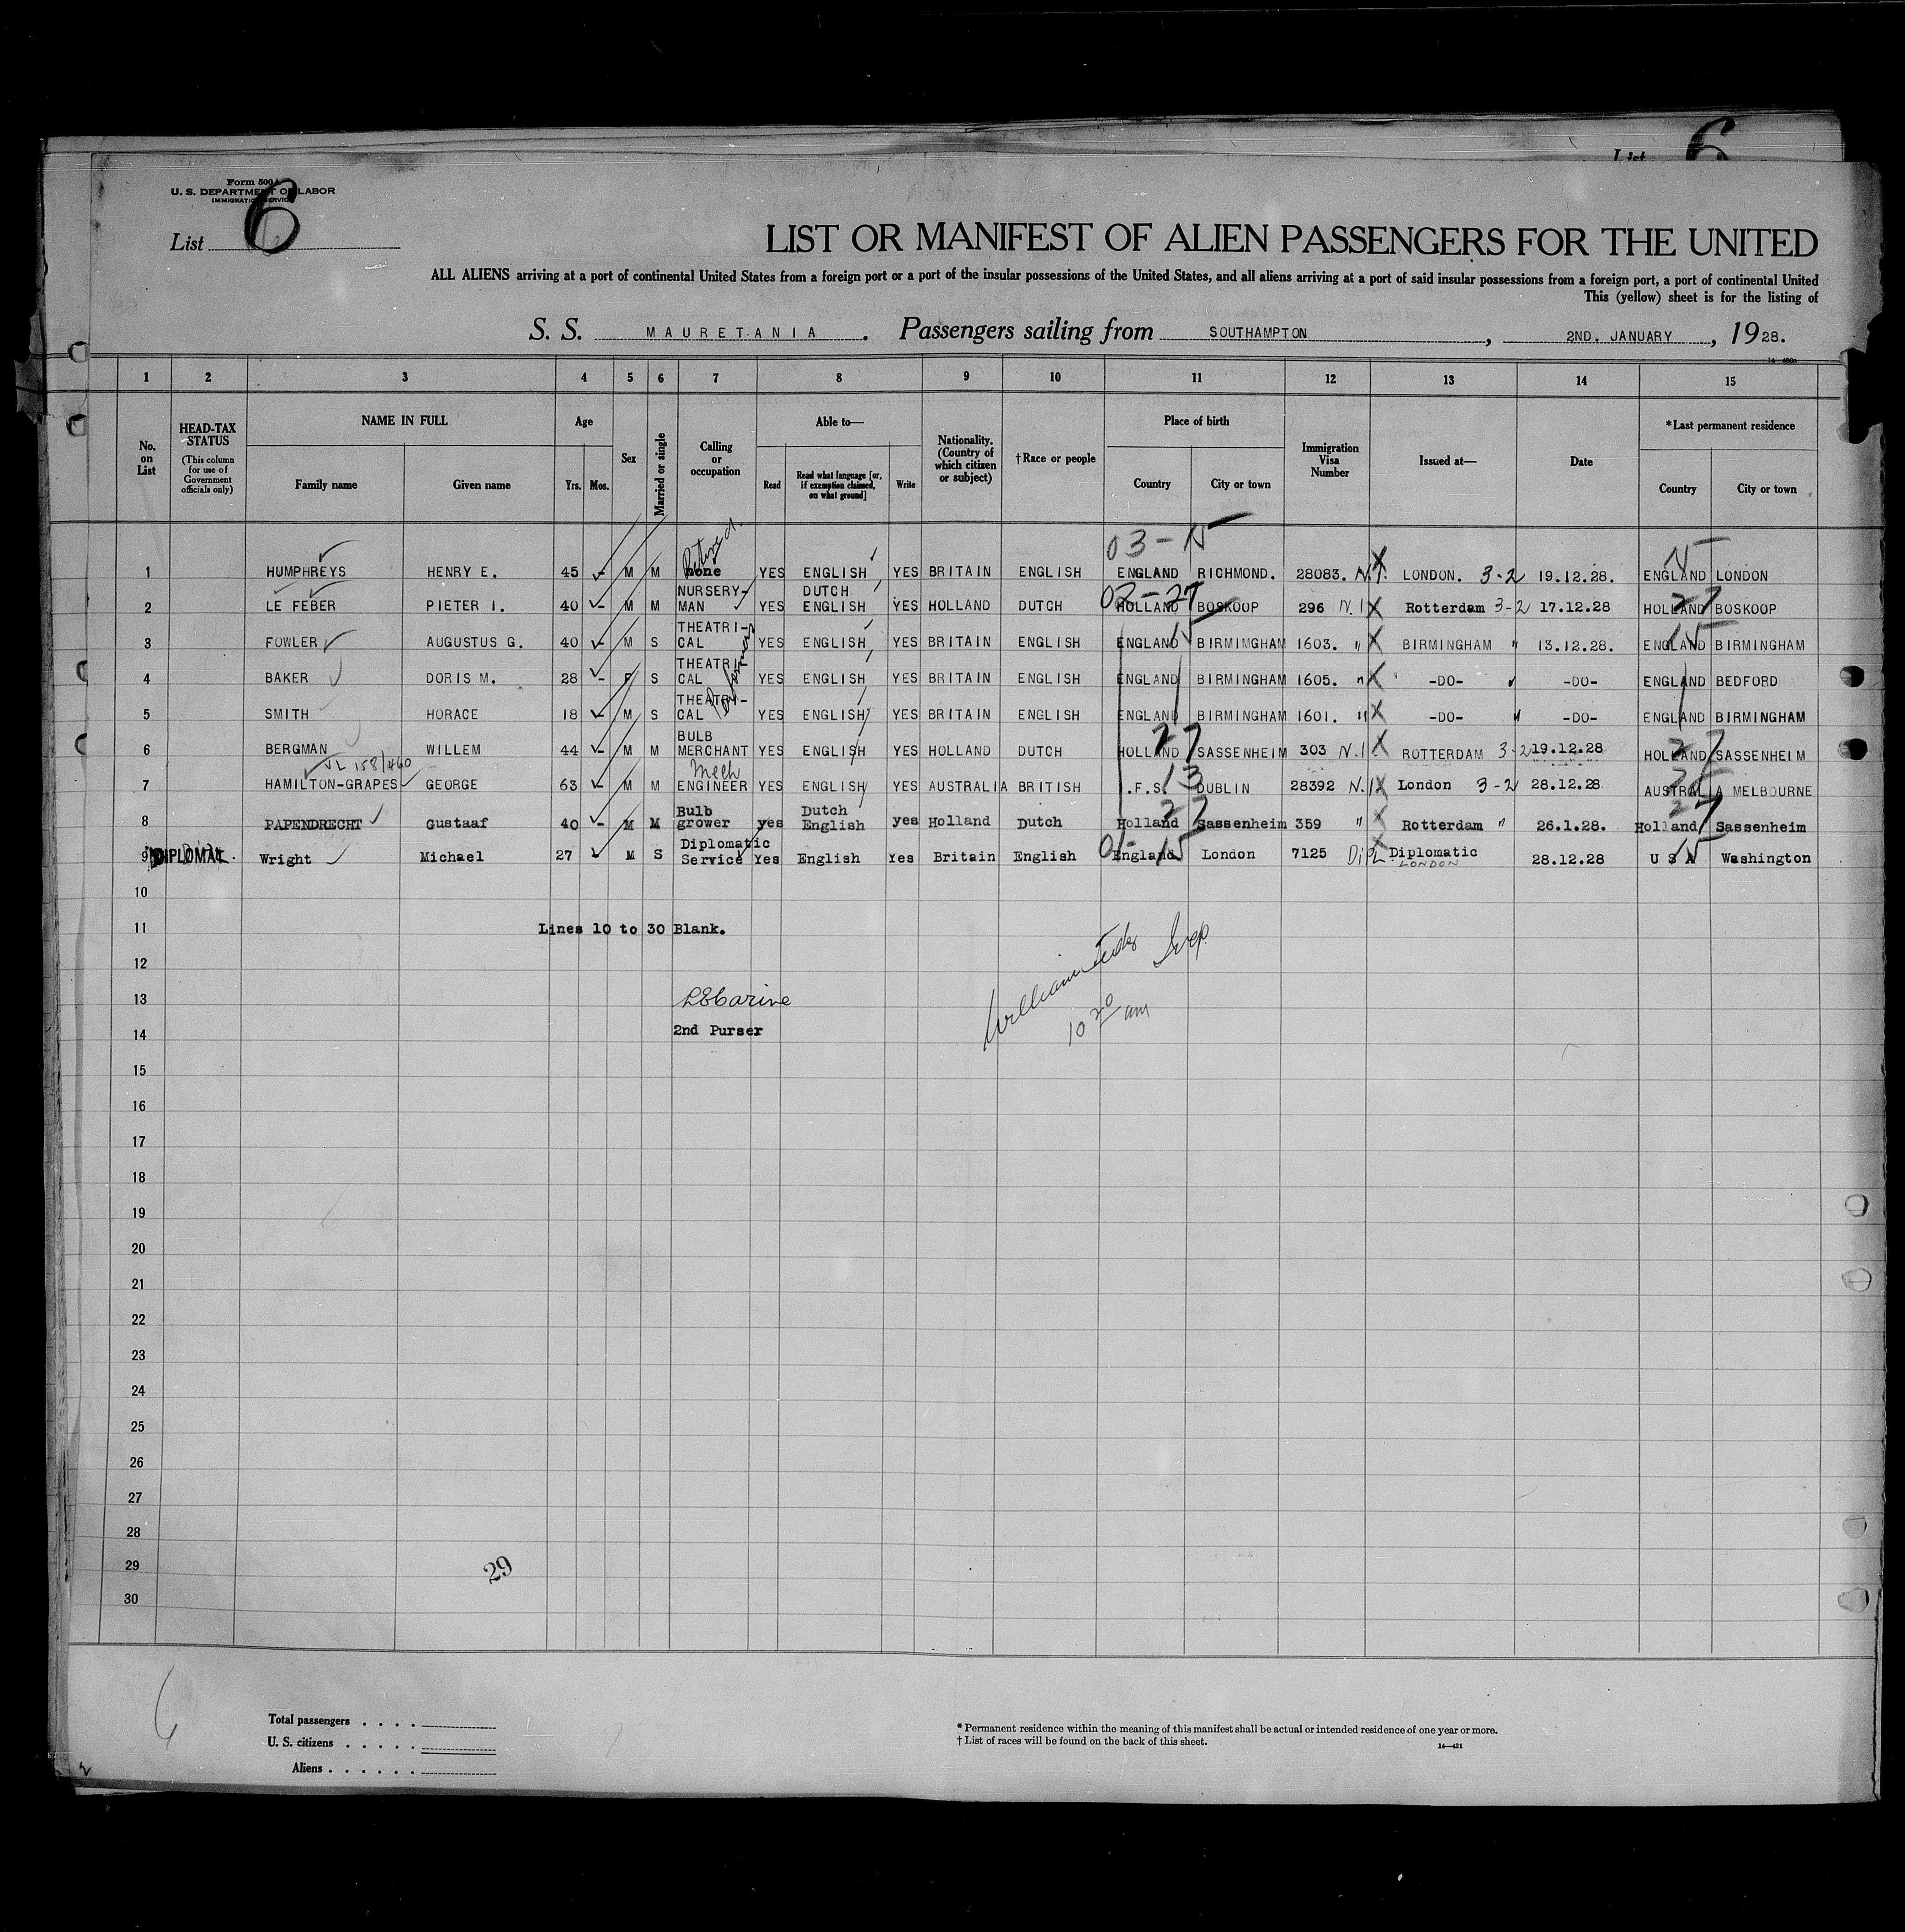 List 6
Form 500
U. S. DEPARTMENT OF LABOR
IMMIGRATION SERVICE
List 6
LIST OR MANIFEST OF ALIEN PASSENGERS FOR THE UNITED
ALL ALIENS arriving at a port of continental United States from a foreign port or a port of the insular possessions of the United States, and all aliens arriving at a port of said insular possessions from a foreign port, a port of continental United
This (yellow) sheet is for the listing of
S. S. MAURETANIA. Passengers sailing from SOUTHAMPTON, 2ND. JANUARY, 1928.
1 2 3 4 5 6 7 8 9 10 11 12 13 14 15
No. on List
HEAD-TAX STATUS (This column for use of Government officials only)
NAME IN FULL Family name Given name
Age Yrs. Mos.
Sex
Married or single
Calling or occupation
Able to— Read Read what language [or, if exemption claimed, on what ground] Write
Nationality. (Country of which citizen or subject)
†Race or people
Place of birth Country City or town
Immigration Visa Number
Issued at—
Date
*Last permanent residence Country City or town
03-15 15
1 HUMPHREYS HENRY E. 45 M M Retired none YES ENGLISH YES BRITAIN ENGLISH ENGLAND RICHMOND. 28083. N.I. LONDON. 3-2 19.12.28. ENGLAND LONDON
2 LE FEBER PIETER I. 40 M M NURSERY-MAN YES DUTCH ENGLISH YES HOLLAND DUTCH 02-27 HOLLAND BOSKOOP 296 N.I Rotterdam 3-2 17.12.28 HOLLAND 27 BOSKOOP
3 FOWLER AUGUSTUS G. 40 M S THEATRI-CAL YES ENGLISH YES BRITAIN ENGLISH ENGLAND 15 BIRMIMGHAM 1603. " BIRMINGHAM " 13.12.28. ENGLAND 15 BIRMINGHAM
4 BAKER DORIS M. 28 F S THEATRI-CAL YES ENGLISH YES BRITAIN ENGLISH ENGLAND BIRMINGHAM 1605. " -DO- " -DO- ENGLAND BEDFORD
5 SMITH HORACE 18 M S THEATRI-CAL YES ENGLISH YES BRITAIN ENGLISH ENGLAND BIRMINGHAM 1601. " -DO- " -DO- ENGLAND BIRMINGHAM
6 BERGMAN WILLEM 44 M M BULB MERCHANT YES ENGLISH YES HOLLAND DUTCH HOLLAND 27 SASSENHEIM 303 N.I. ROTTERDAM 3-2 19.12.28 HOLLAND 27 SASSENHEIM
VL 158/460
7 HAMILTON-GRAPES GEORGE 63 M M Mech ENGINEER YES ENGLISH YES AUSTRALIA BRITISH I.F.S. 13 DUBLIN 28392 N.I London 3-2 28.12.28 AUSTRALIA MELBOURNE
8 PAPENDRECHT Gustaaf 40 M M Bulb grower yes Dutch English yes Holland Dutch Holland 27 Sassenheim 359 " Rotterdam " 26.1.28. Holland 27 Sassenheim
9 DIPLOMAT. Wright Michael 27 M S Diplomatic Service Yes English Yes Britain English 01-15 England London 7125 DIPL Diplomatic LONDON 28.12.28 U S A 15 Washington
10
11 Lines 10 to 30 Blank.
12
13
14 2nd Purser
10 20 am
15
16
17
18
19
20
21
22
23
24
25
26
27
28
29
30
29
Total passengers
U. S. citizens
Aliens
* Permanent residence within the meaning of this manifest shall be actual or intended residence of one year or more.
† List of races will be found on the back of this sheet.
14—431